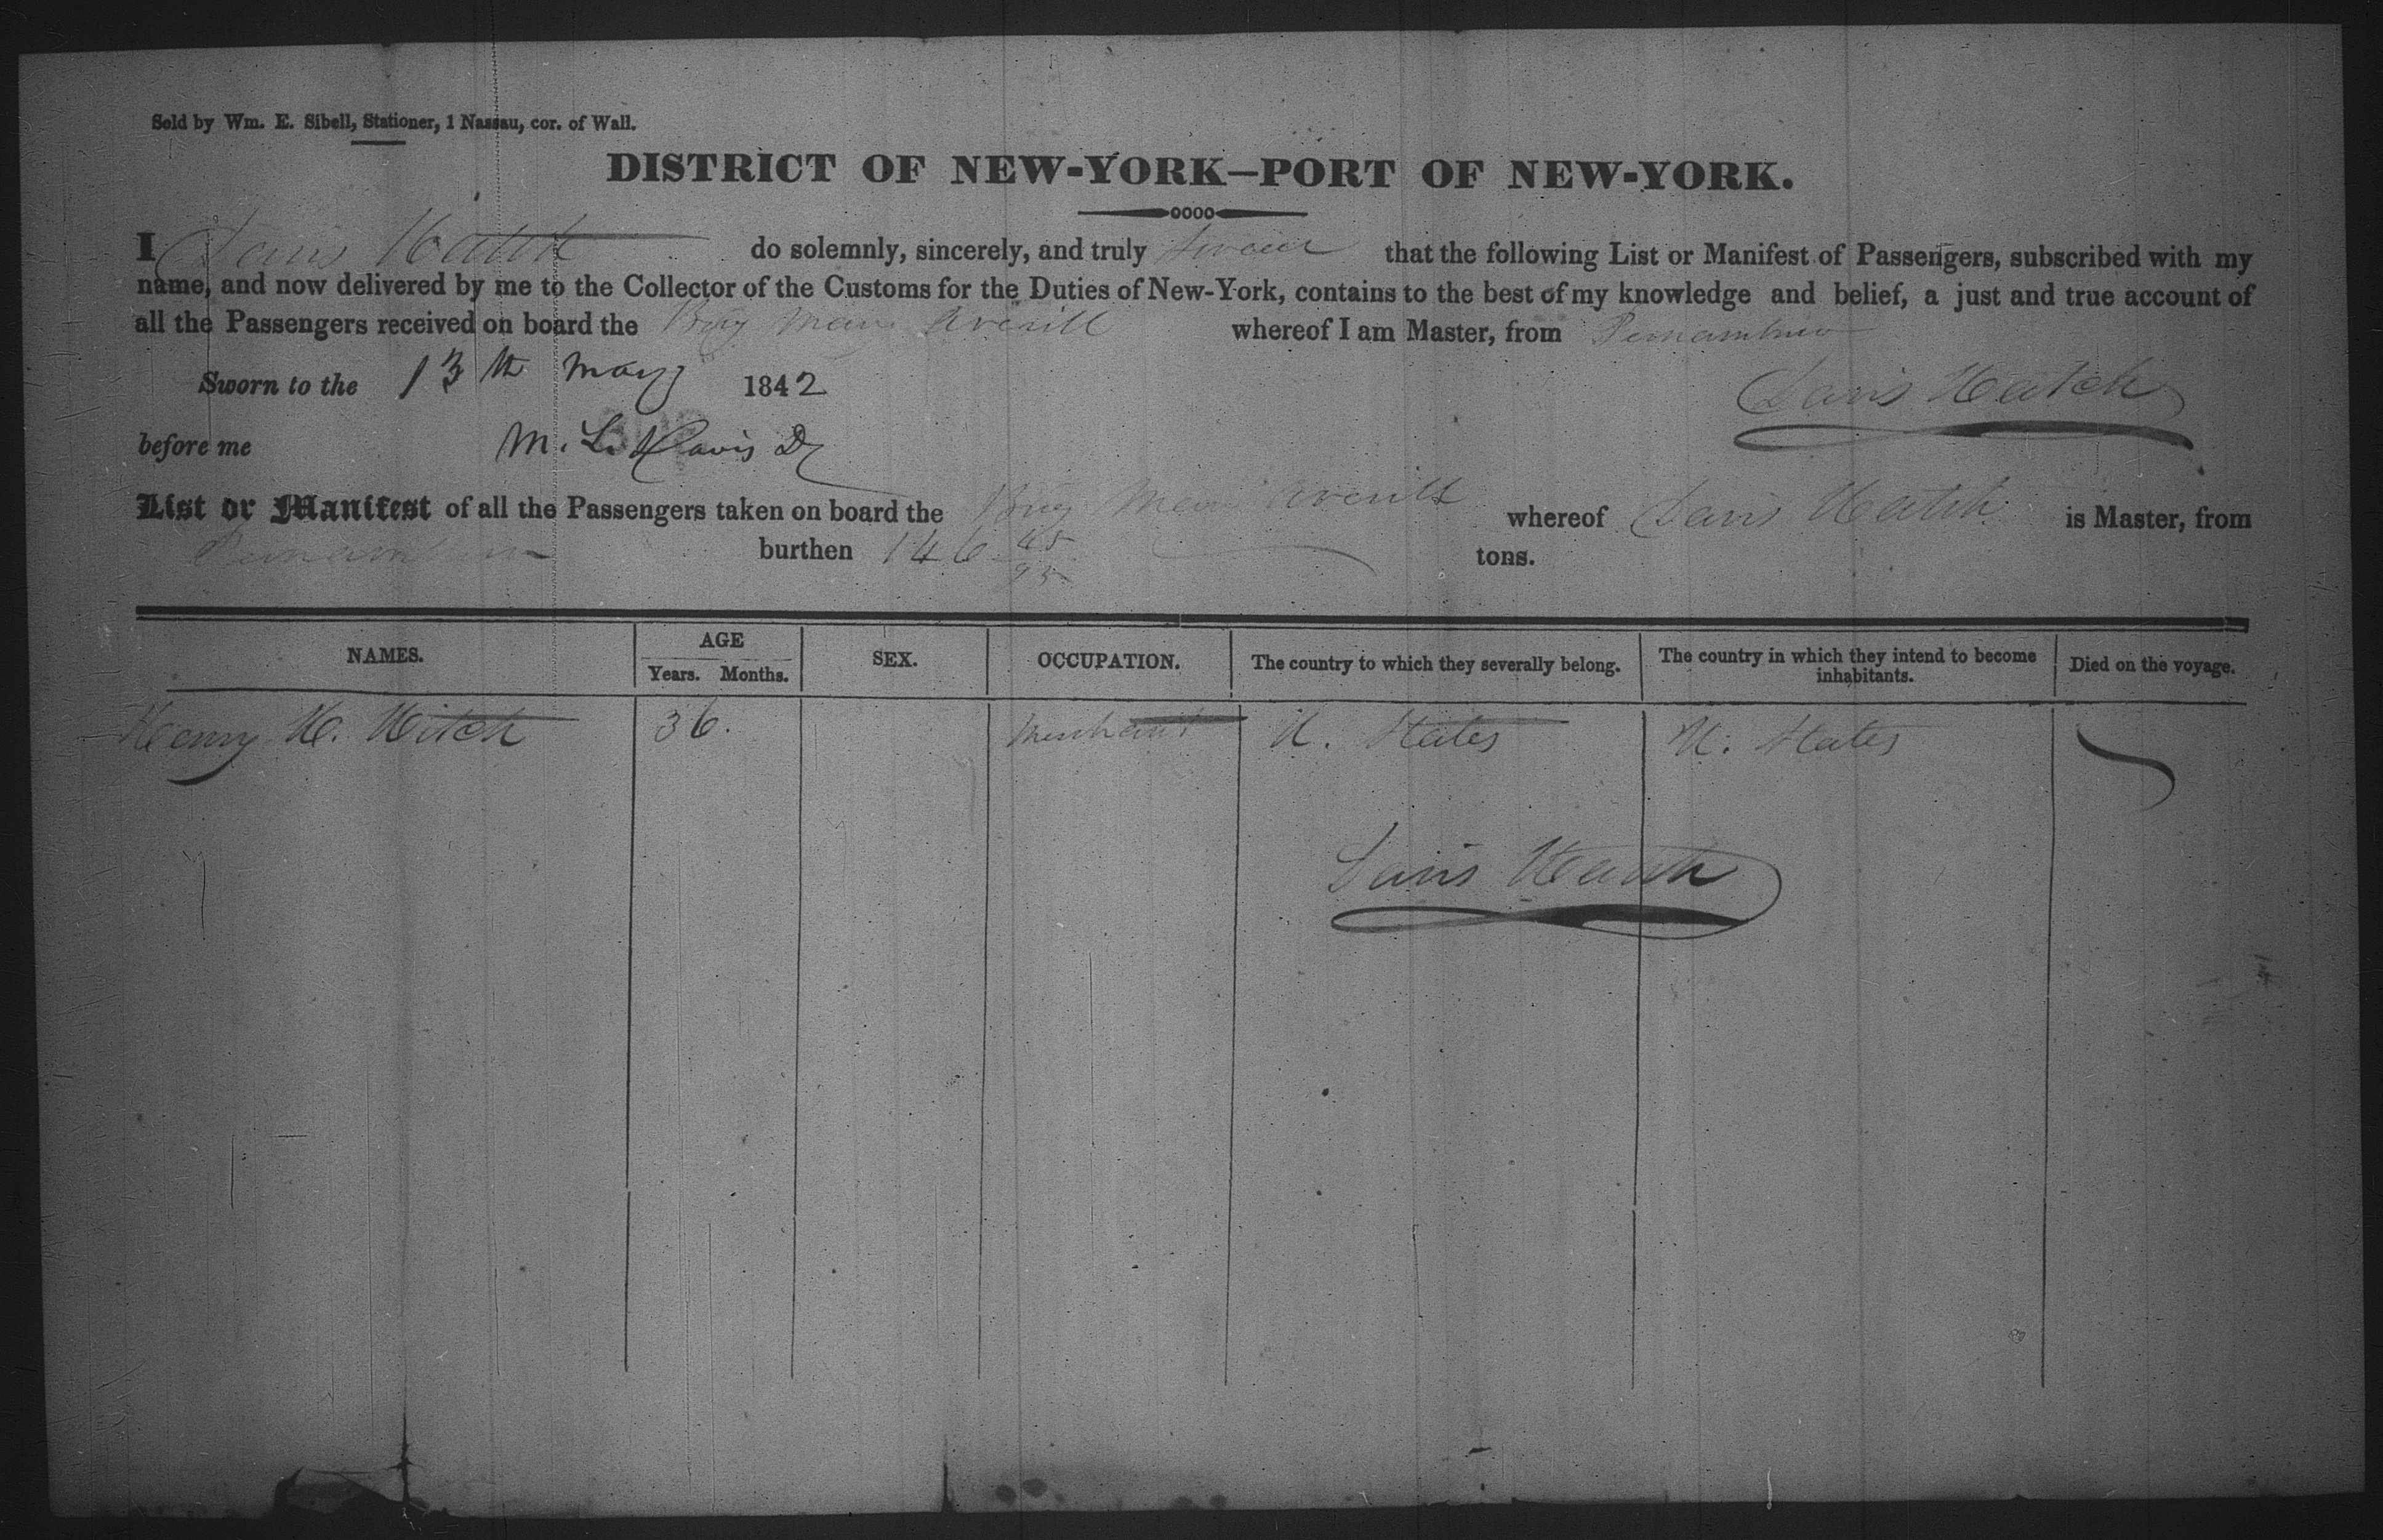 Sold by Wm. E. Sibell, Stationer, 1 Nassau, cor. of Wall.
DISTRICT OF NEW-YORK—PORT OF NEW-YORK.
I Davis Hatch do solemnly, sincerely, and truly swear that the following List or Manifest of Passengers, subscribed with my
name, and now delivered by me to the Collector of the Customs for the Duties of New-York, contains to the best of my knowledge and belief, a just and true account of
all the Passengers received on board the Brig Averill whereof I am Master, from Pernambuco
Sworn to the 13th May 1842
Davis Hatch
before me M. L. Davis
List or Manifest of all the Passengers taken on board the Brig Averill whereof Davis Hatch is Master, from
Pernambuco burthen 146 45/95 tons.
NAMES. AGE Years. Months. SEX. OCCUPATION. The country to which they severally belong. The country in which they intend to become inhabitants. Died on the voyage.
Henry H. Hitch 36. Merchant U. States U. States
Davis Hatch